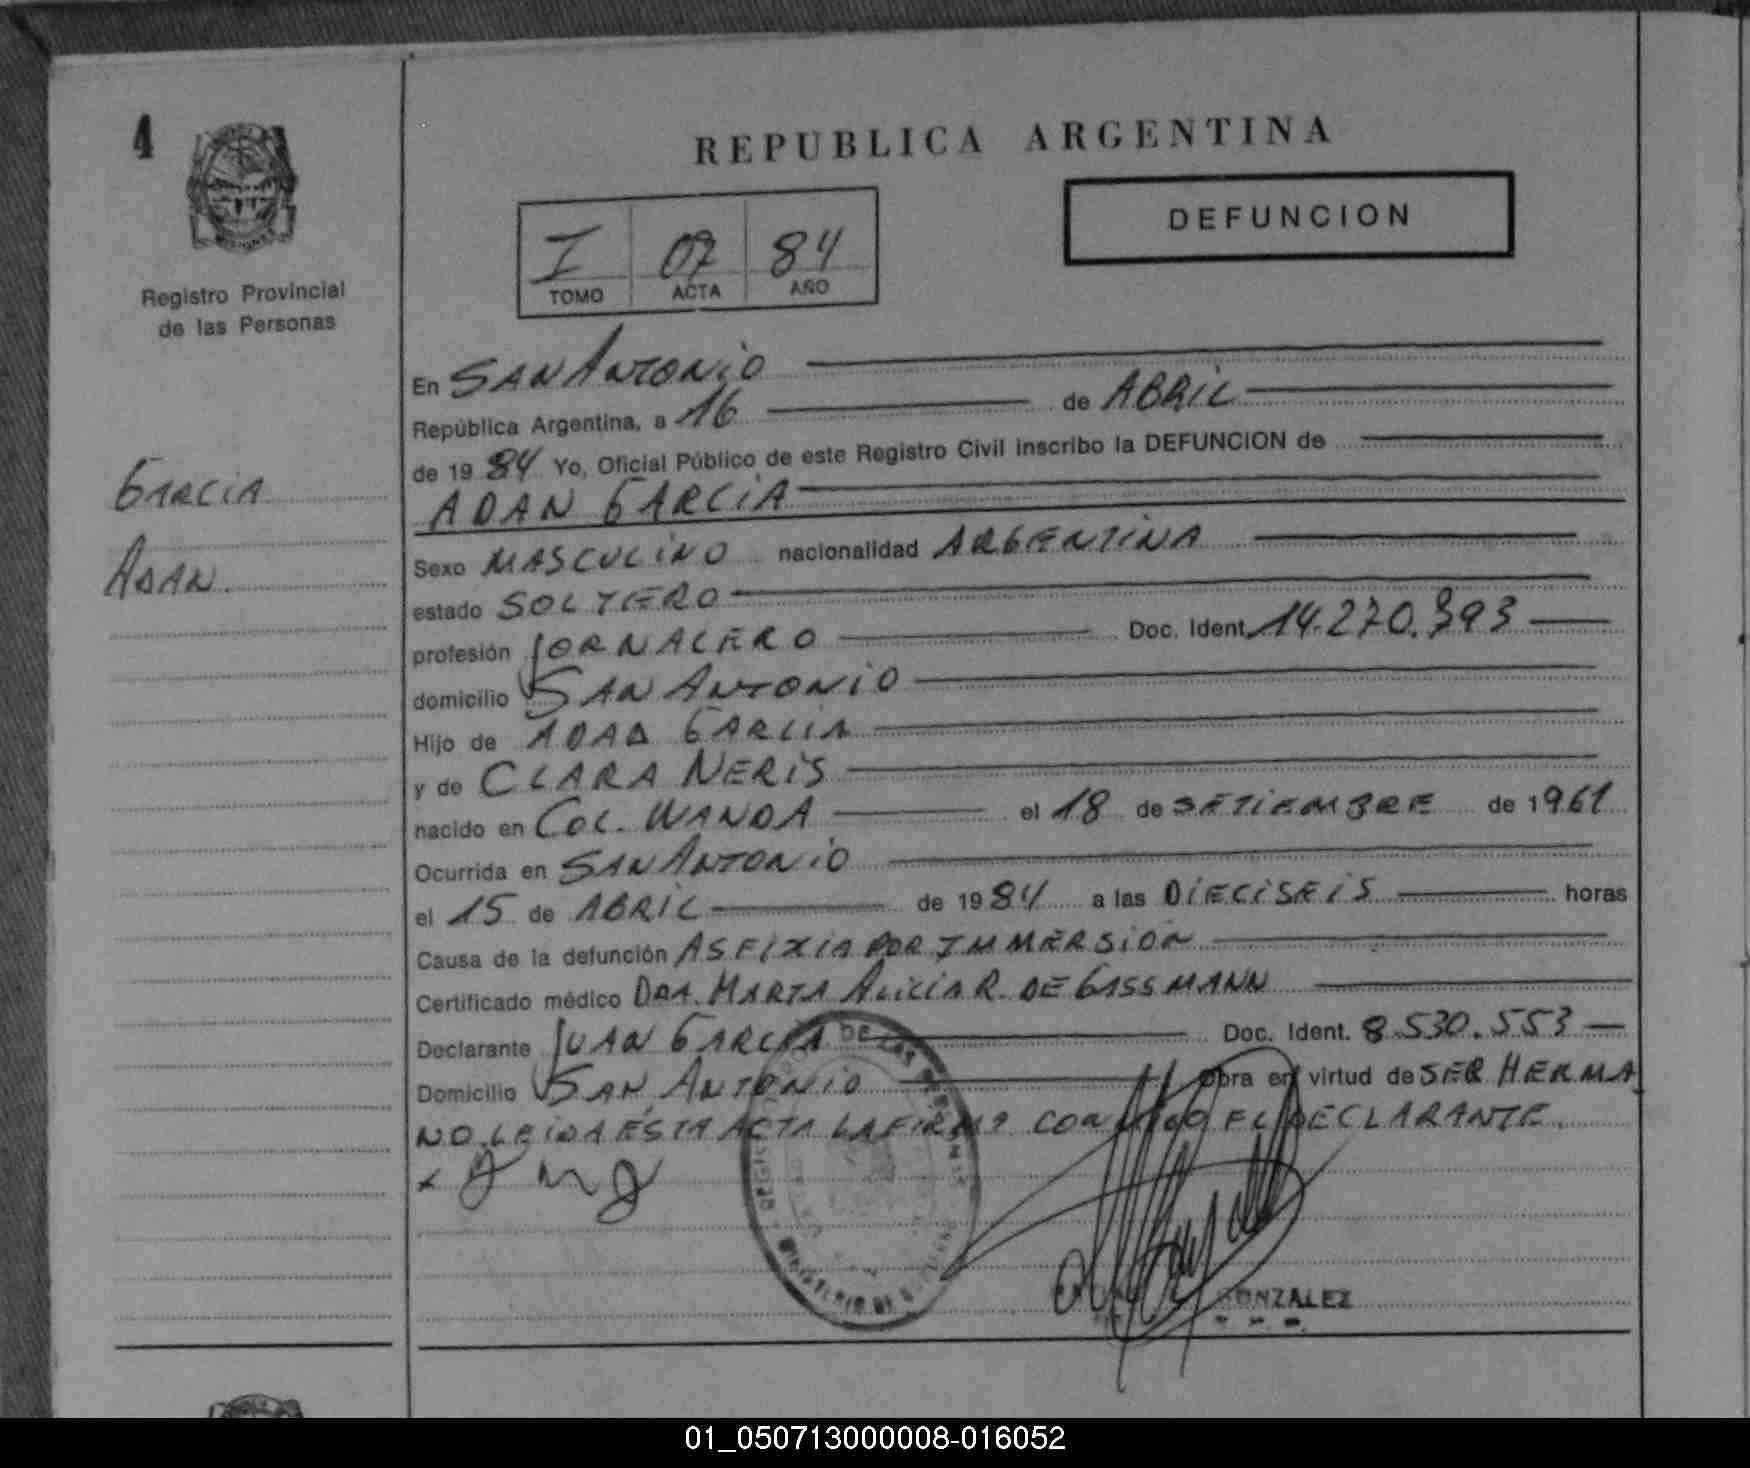 4
REPUBLICA ARGENTINA
DEFUNCION
I 07 84
TOMO ACTA AÑO
Registro Provincial
de las Personas
GARCIA
ADAN
En SAN ANTONIO
República Argentina, a 16 de ABRIL
de 1984 Yo, Oficial Público de este Registro Civil inscribo la DEFUNCION de
ADAN GARCIA
Sexo MASCULINO nacionalidad ARGENTINA
estado SOLTERO
profesión JORNALERO Doc. Ident. 14.270.393
domicilio SAN ANTONIO
Hijo de ADAD GARCIA
y de CLARA NERIS
nacido en COL. WANDA el 18 de SETIEMBRE de 1961
Ocurrida en SAN ANTONIO
el 15 de ABRIL de 1984 a las DIECISEIS horas
Causa de la defunción ASFIXIA POR IMMERSION
Certificado médico DRA. MARTA ALICIA R. DE GASSMANN
Declarante JUAN GARCIA Doc. Ident. 8.530.553
Domicilio SAN ANTONIO Obra en virtud de SER HERMA
NO. LEIDA ESTA ACTA LA FIRMA CONMIGO EL DECLARANTE.
REGISTRO DE LAS PERSONAS
MINISTERIO DE
GONZALEZ
01_050713000008-016052